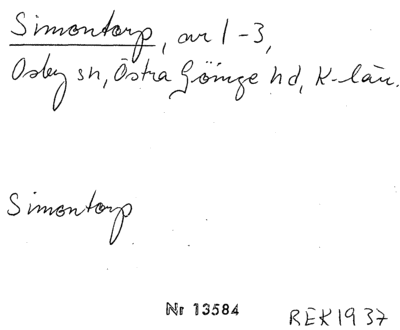 Simontorp, nr 1-3,
Osby sn, Östra Göinge hd, K-län.
Simontorp
Nr 13584
REK1937